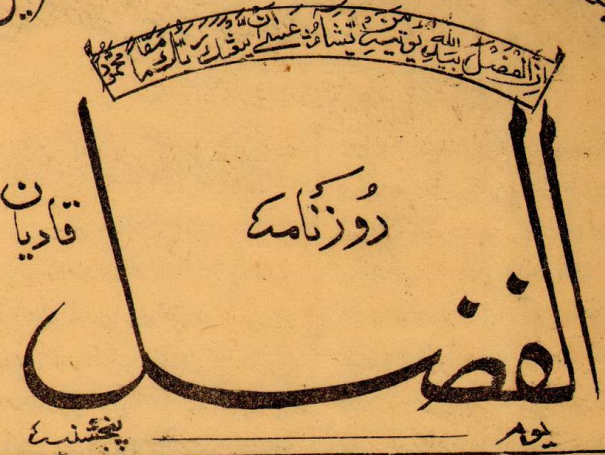 ان الفضل بید اللہ یؤتیہ من یشاء عسیٰ ان یبعثک ربک مقاما محمودا
روزنامہ
قادیان
الفضل
یوم پنجشنبہ